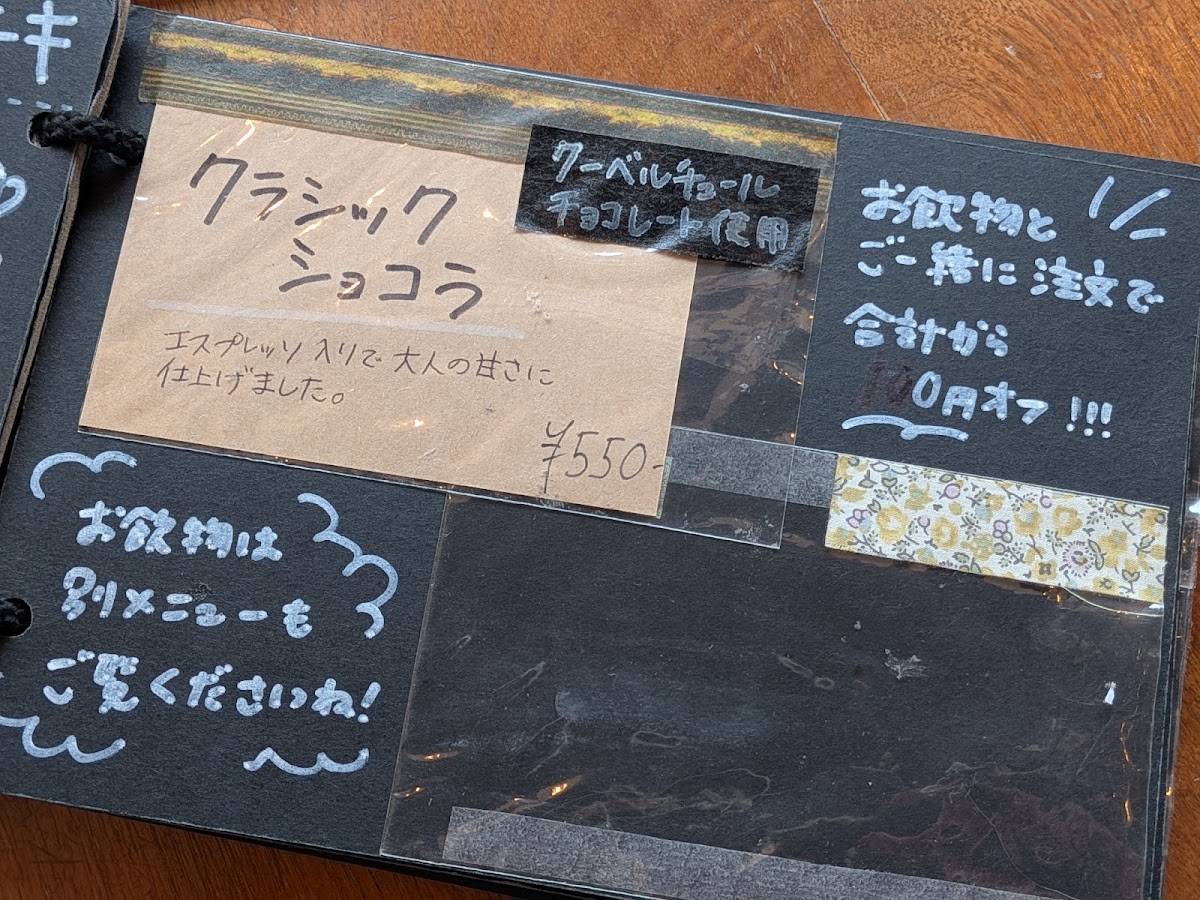 ーキ
クラシック
ショコラ
クーベルチュール
チョコレート使用
エスプレッソ入りで大人の甘さに
仕上げました。
¥550-
お飲物と
ご一緒に注文で
合計から
0円オフ!!!
お飲物は
別メニューも
ご覧くださいね!